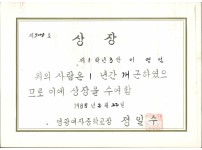 상장
제 1 학년 3 반 이 영 임
위의 사람은 1 년간 개근하였으
므로 이에 상장을 수여함
1988년 2월 22일
영광여자중학교장 정일수